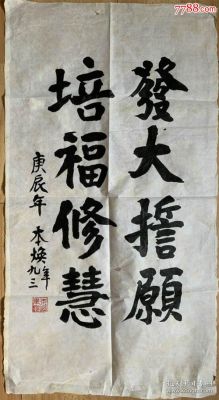 發大誓願
培福修慧
庚辰年 本煥年九三
7788.com